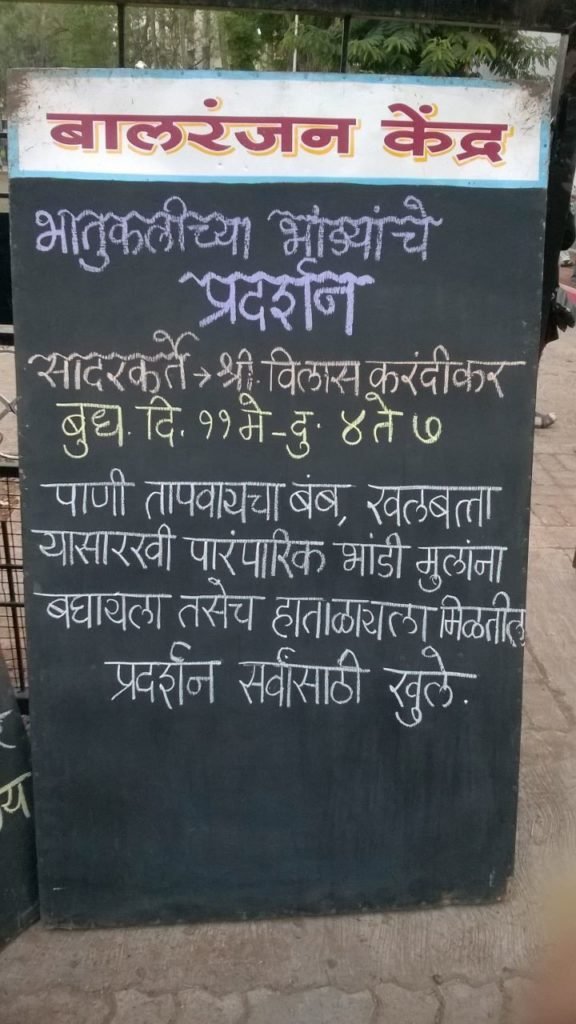 बालरंजन केंद्र
भातुकलीच्या भांड्यांचे
प्रदर्शन
सादरकर्ते → श्री. विलास करंदीकर
बुध. दि. ११ मे - दु. ४ ते ७
पाणी तापवायचा बंब, खलबत्ता
यासारखी पारंपारिक भांडी मुलांना
बघायला तसेच हाताळायला मिळतील
प्रदर्शन सर्वांसाठी खुले.